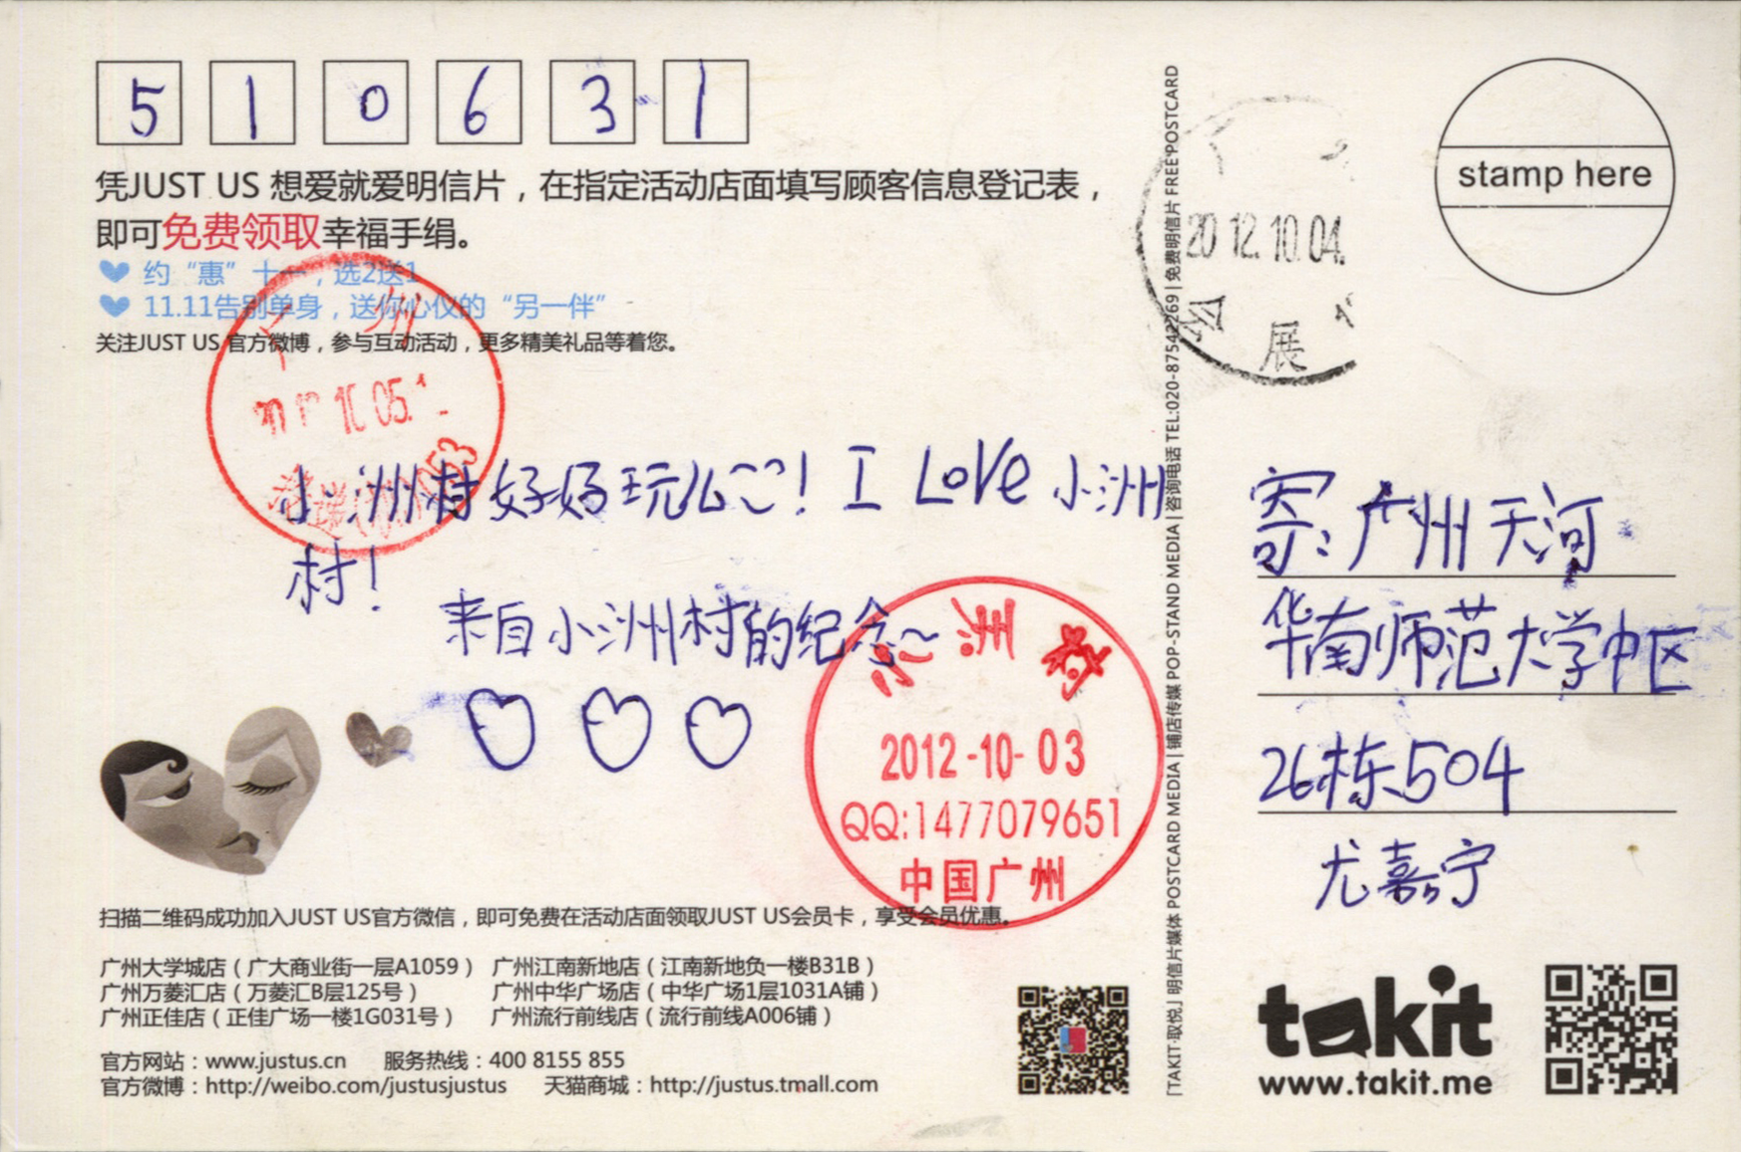 510631
凭JUST US 想爱就爱明信片，在指定活动店面填写顾客信息登记表，
即可免费领取幸福手绢。
约“惠”十一，选2送1
11.11告别单身，送你心仪的“另一伴”
关注JUST US 官方微博，参与互动活动，更多精美礼品等着您。
广 州
10.05.
小洲村好好玩么~~! I Love 小洲
村!
来自小洲村的纪念~
小洲村
2012-10-03
QQ:1477079651
中国广州
扫描二维码成功加入JUST US官方微信，即可免费在活动店面领取JUST US会员卡，享受会员优惠。
广州大学城店（广大商业街一层A1059） 广州江南新地店（江南新地负一楼B31B）
广州万菱汇店（万菱汇B层125号） 广州中华广场店（中华广场1层1031A铺）
广州正佳店（正佳广场一楼1G031号） 广州流行前线店（流行前线A006铺）
官方网站：www.justus.cn 服务热线：400 8155 855
官方微博：http://weibo.com/justusjustus 天猫商城：http://justus.tmall.com
「TAKIT·取悦」明信片媒体 POSTCARD MEDIA | 铺店传媒 POP-STAND MEDIA | 咨询电话 TEL:020-87542269 | 免费明信片 FREE POSTCARD
2012.10.04.
会 展
stamp here
寄:广州天河
华南师范大学中区
26栋504
尤嘉宁
takit
www.takit.me